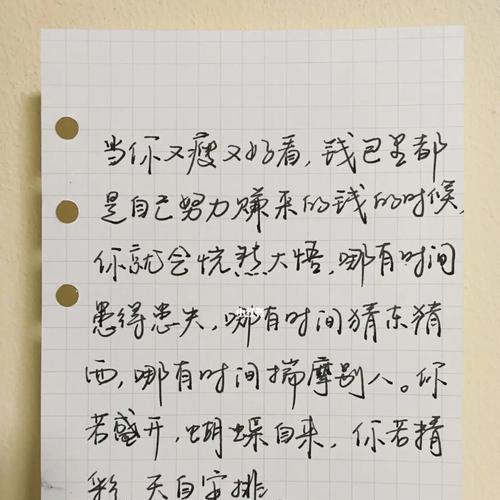 当你又瘦又好看，钱包里都
是自己努力赚来的钱的时候，
你就会恍然大悟，哪有时间
患得患失，哪有时间猜东猜
西，哪有时间揣摩别人。你
若盛开，蝴蝶自来，你若精
彩，天自安排